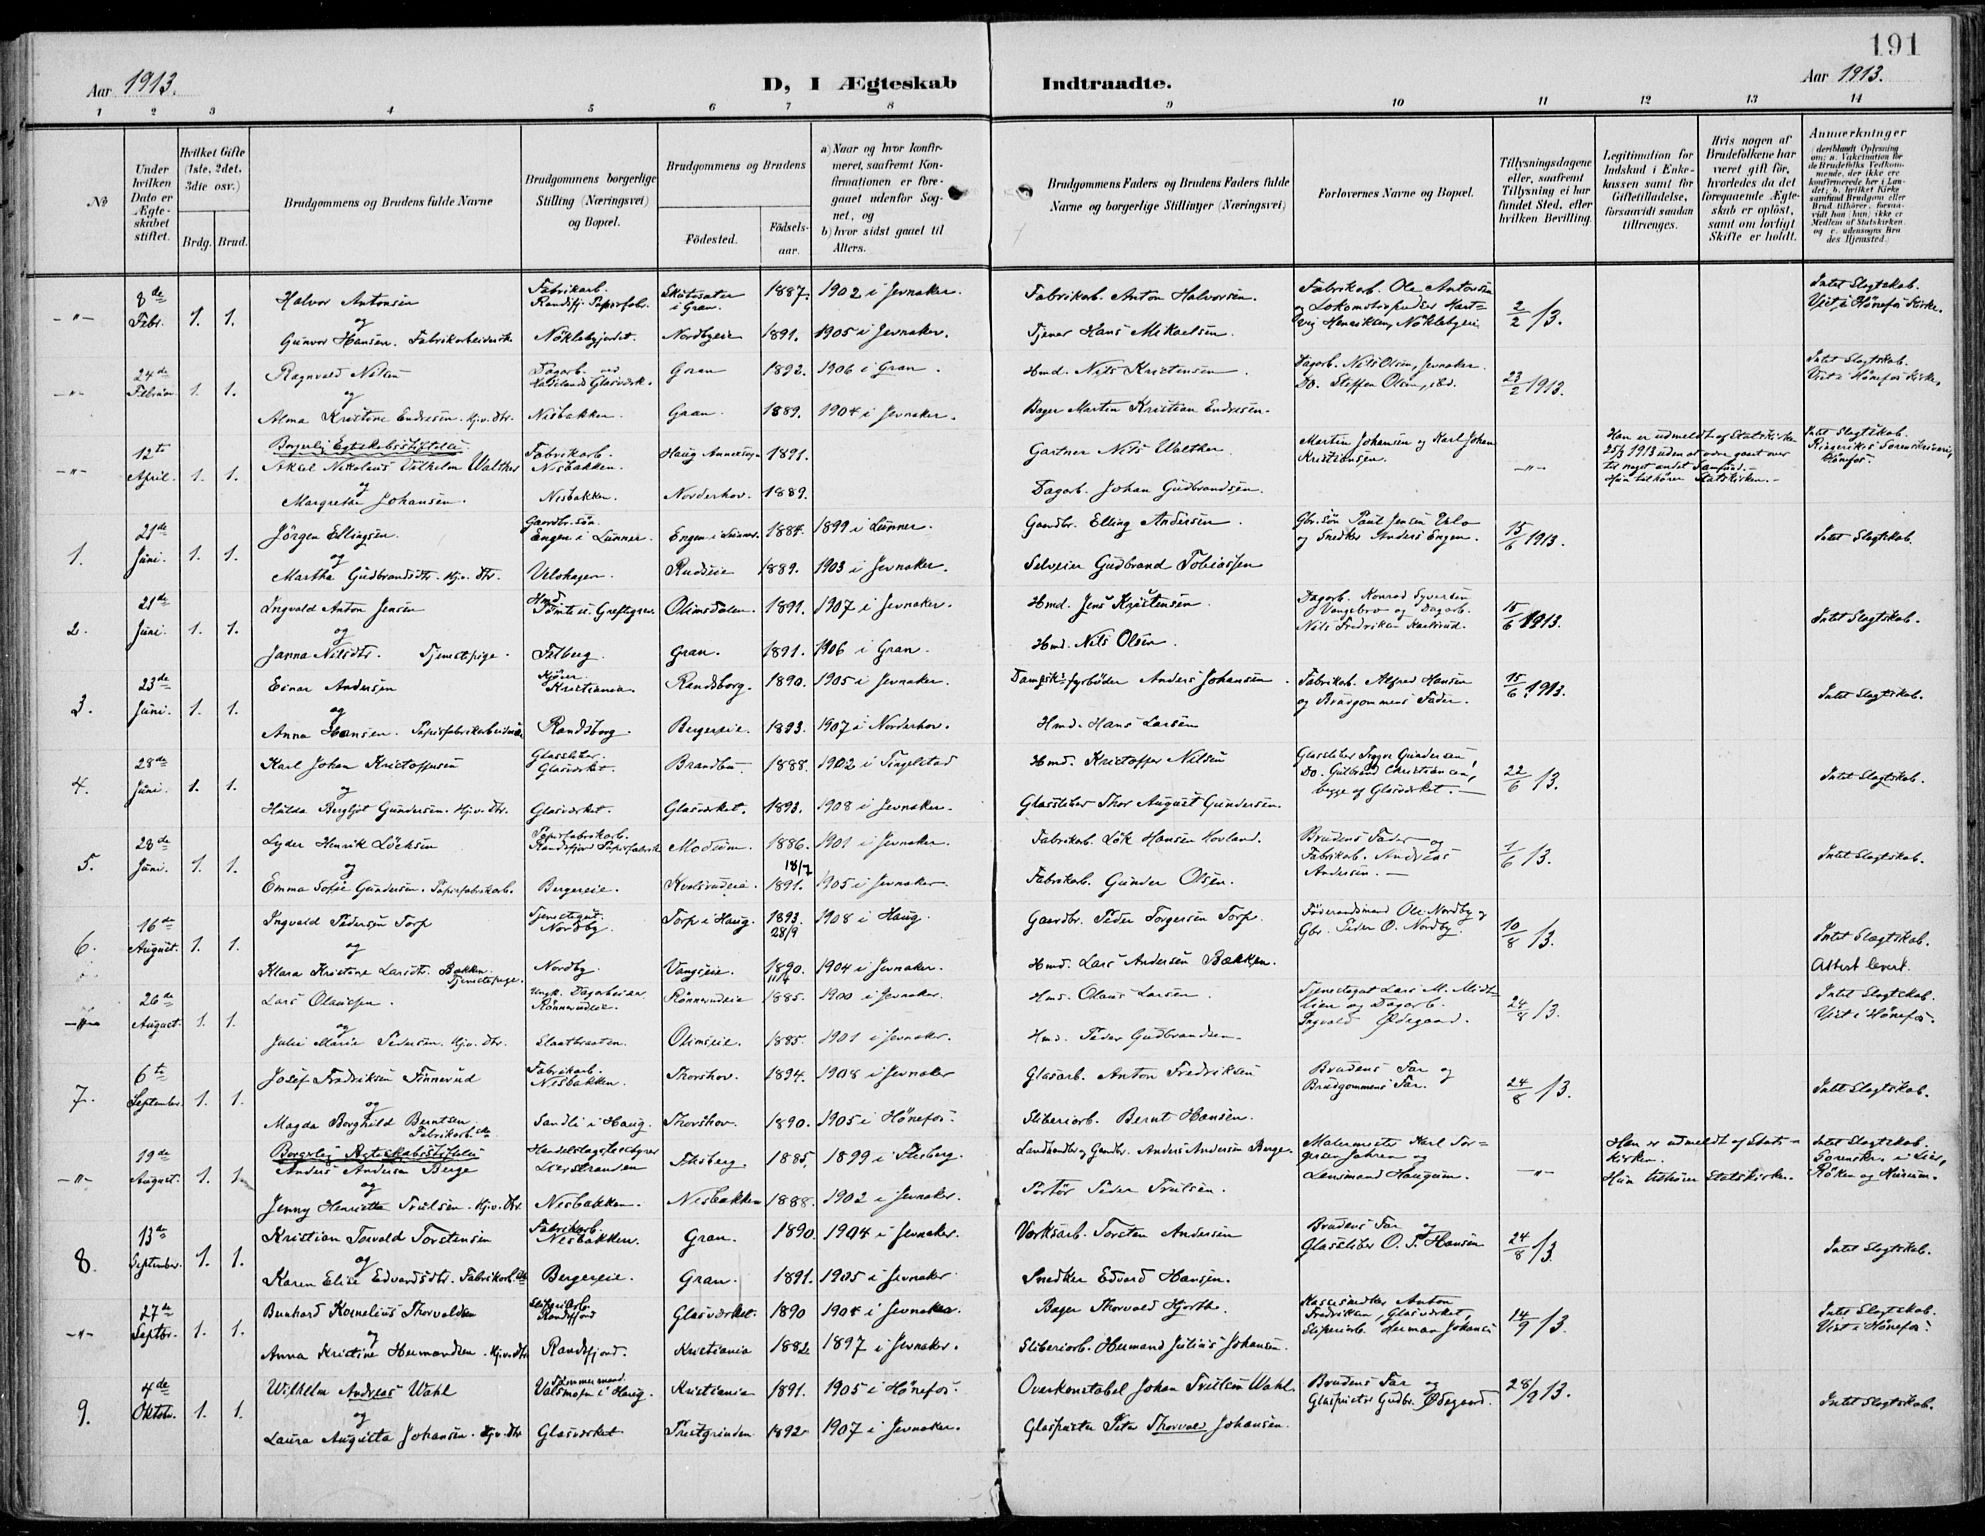 191
Aar 1913.
D, I Ægteskab Indtraadte.
Aar 1913.
1 2 3 4 5 6 7 8 9 10 11 12 13 14
No
Under hvilken Dato er Ægteskabet stiftet.
Hvilket Gifte (1ste, 2det, 3die osv.)
Brdg. Brud.
Brudgommens og Brudens fulde Navne
Brudgommens borgerlige Stilling (Næringsvei) og Bopæl.
Brudgommens og Brudens
Födested.
Födselsaar.
a) Naar og hvor konfirmeret, saafremt Konfirmationen er foregaaet udenfor Sognet, og
b) hvor sidst gaaet til Alters.
Brudgommens Faders og Brudens Faders fulde Navne og borgerlige Stillinger (Næringsvei)
Forlovernes Navne og Bopæl.
Tillysningsdagene eller, saafremt Tillysning ei har fundet Sted, efter hvilken Bevilling.
Legitimation for Indskud i Enkekassen samt for Giftetilladelse, forsaavidt saadan tillrænges.
Hvis nogen af Brudefolkene har været gift för, hvorledes da det foregaaende Ægteskab er oplöst, samt om lovligt Skifte er holdt.
Anmerkninger (deriblandt Oplysning om: a. Vakcination for de Brudefolks Vedkommende, der ikke ere konfirmerede her i Landet; b. hvilket Kirkesamfund Brudgom eller Brud tilhörer, forsaavidt han (hun) ikke er Medlem af Statskirken, og c. udensogns Brudes Hjemsted.)
-"- 8de Febr. 1. 1. Halvor Antonsen Fabrikarb. Randsfj. Papirfabr. i Gran. 1887. 1902 i Jevnaker. Fabrikarb. Anton Halvorsen. Fabrikarb. Ole Antonsen og Lokomotivpudser Hartvig Henriksen, Nöklebyeie 2/2 13. Intet Slegtskab. Viet i Hönefos Kirke.
og
Gunvor Hansen. Fabrikarbeiderske Nöklebyjordet. Nordbyeie 1891. 1905 i Jevnaker. Tjener Hans Mikaelsen.
-"- 24de Februar 1. 1. Ragnvald Nilsen Dagarb. ved Hadelands Glasværk. Gran 1892. 1906 i Gran. Hmd. Nils Kristensen. Dagarb. Nils Olsen, Jevnaker. Do. Steffen Olsen, ibd. 23/2 1913. Intet Slegtskab. Viet i Hönefos Kirke.
og
Alma Kristine Endresen. Hjv. Dtr. Nesbakken. Gran. 1889. 1904 i Jevnaker. Bager Martin Kristian Endresen.
-"- 12te April. 1. 1. Borgerlig Egteskabsstiftelse Aksel Nikolaus Vilhelm Walther Fabrikarb. Nesbakken. Haug Annexsogn 1891. Gartner Nils Walther. Martin Johansen og Karl Johan Kristiansen. -"- Han er udmeldt af Statskirken 25/3 1913 uden at være gaaet over til noget andet Samfund. Hun tilhörer Statskirken. Intet Slegtskab. Ringerikes Sorenskriveri, Hönefos.
og
Margrethe Johansen. Nesbakken. Norderhov. 1889. Dagarb. Johan Gudbrandsen.
1. 21de Juni. 1. 1. Jörgen Ellingsen. Gaardbr. sön Engen i Lunner. Engen i Lunner. 1884. 1899 i Lunner. Gaardbr. Elling Andersen. Gbr. sön Paul Jensen Velo og Snedker Anders Engen. 15/6 1913. Intet Slegtskab.
og
Martha Gudbrandsdtr. Hjv. Dtr. Velohagen. Rudseie 1889. 1903 i Jevnaker. Selveier Gudbrand Tobiassen
2. 21de Juni. 1. 1. Ingvald Anton Jensen Hmd. Tömte u. Greftegrev. Olimsdalen. 1891. 1907 i Jevnaker. Hmd. Jens Kristensen. Dagarb. Konrad Syversen Vangebro og Dagarb. Nils Fredriksen Karlsrud. 15/6 1913. Intet Slegtskab.
og
Janna Nilsdtr. Tjenestepige. Felberg. Gran. 1891. 1906 i Gran. Hmd. Nils Olsen
3. 23de Juni. 1. 1. Einar Andersen Kjører. Kristiania. Randsborg. 1890. 1905 i Jevnaker. Dampsk.fyrböder Anders Johansen. Fabrikarb. Alfred Hansen og Brudgommens Fader. 15/6 1913. Intet Slegtskab.
og
Anna Hansen. Papirfabrikarbeiderske Randsborg. Bergereie. 1893. 1907 i Norderhov. Hmd. Hans Larsen
4. 28de Juni. 1. 1. Karl Johan Kristoffersen Glassliber. Glasværket. Brandbu. 1888. 1902 i Tingelstad Hmd. Kristoffer Nilsen Glassliber Sigge Gundersen, Do. Gulbrand Christiansen, begge af Glasværket. 22/6 13. Intet Slegtskab.
og
Hulda Bergljot Gundersen. Hjv. Dtr. Glasværket. Glasværket. 1893. 1908 i Jevnaker. Glassliber Thor August Gundersen.
5. 28de Juni. 1. 1. Lyder Henrik Löcksen Papirfabrikarb. Randsfjord Papirfabrik Modum. 1886. 1901 i Jevnaker. Fabrikarb. Lök Hansen Hovland. Brudens Fader og Fabrikarb. Andreas Andersen. 1/6 13. Intet Slegtskab.
og
Emma Sofie Gundersen. Papirfabrikarb. Bergereie. 18/7 1891. 1905 i Jevnaker. Fabrikarb. Gunder Olsen.
6. 16de August. 1. 1. Ingvald Pedersen Torp Tjenestegut. Nordby. Torp i Haug. 1893. 28/9 1908 i Haug. Gaardbr. Peder Torgersen Torp. Föderaadsmand Ole Nordby og Gbr. Peder O. Nordby. 10/8 13. Intet Slegtskab.
og
Klara Kristine Larsdtr. Bakken. Tjenestepige. Nordby. Vangseie. 1890. 1904 i Jevnaker. Hmd. Lars Andersen Bakken. Attest levert.
-"- 26de August. 1. 1. Lars Olaussen. Ungk. Dagarbeider Rönnerudeie. Rönnerudeie 1885. 1900 i Jevnaker. Hmd. Olaus Larsen. Tjenestegut Lars M. Midtlien og Dagarb. Ingvald Ödegaard. 24/8 13. Intet Slegtskab. Viet i Hönefos.
og
Julie Marie Pedersen. Hjv. Dtr. Slaatbraaten. Olimseie. 1885. 1901 i Jevnaker. Hmd. Peder Gudbrandsen.
7. 6te September. 1. 1. Josef Fredriksen Finnerud Fabrikarb. Nesbakken. Thorshov. 1894. 1908 i Jevnaker Glasarb. Anton Fredriksen Brudens Far og Brudgommens Far. 24/8 13. Intet Slegtskab.
og
Magda Borghild Berntsen. Fabrikarb.ske Sandli i Haug. Thorshov. 1890. 1905 i Hönefos. Sliberiarb. Bernt Hansen.
-"- 19de August. 1. 1. Borgerlig Ægteskabsstiftelse Anders Andersen Berge Handelslagsbestyrer Lierstranden Flesberg. 1885. 1899 i Flesberg. Landhandler og Gaardbr. Anders Andersen Berge. Malermester Karl Torgersen Jahren og Lensmand Haugum. -"- Han er udmeldt af Statskirken. Hun tilhörer Statskirken. Intet Slegtskab. Sorenskr. i Lier, Röken og Hurum.
og
Jenny Henriette Trulsen. Hjv. Dtr. Nesbakken. Nesbakken 1888. 1902 i Jevnaker. Portör Peder Trulsen.
8. 13de September. 1. 1. Kristian Torvald Torstensen Fabrikarb. Nesbakken. Gran. 1890. 1904 i Jevnaker. Verksarb. Torsten Andersen Brudens Far og Glassliber O. T. Hansen 24/8 13. Intet Slegtskab.
og
Karen Elise Edvardsdtr. Fabrikarb.ske Bergereie. Gran. 1891. 1905 i Jevnaker. Snedker Edvard Hansen.
-"- 27de Septbr. 1. 1. Bernhard Kornelius Thorvaldsen Sliperiarb. Randsfjord Glasværket. 1890 1904 i Jevnaker. Bager Thorvald Hjorth. Kassesnedker Anton Fredriksen, Glasværket, Sliperiarb. Herman Johansen 14/9 13. Intet Slegtskab. Viet i Hönefos.
og
Anna Kristine Hermandsen. Hjv. Dtr. Randsfjord. Kristiania 1882 1897 i Jevnaker. Sliberiarb. Hermand Julius Johansen.
9. 4de Oktobr. 1. 1. Wilhelm Andreas Wahl Tömmermand. Valsmoen i Haug. Kristiania 1891. 1905 i Hönefos. Overkonstabel Johan Trulsen Wahl. Brudens Far og Glaspuster Gudbr. Ödegaard. 28/9 13. Intet Slegtskab.
og
Laura Augusta Johansen. Hjv. Dtr Glasværket. Trætgrinden 1892 1907 i Jevnaker. Glaspuster Peter Thorvald Johansen.